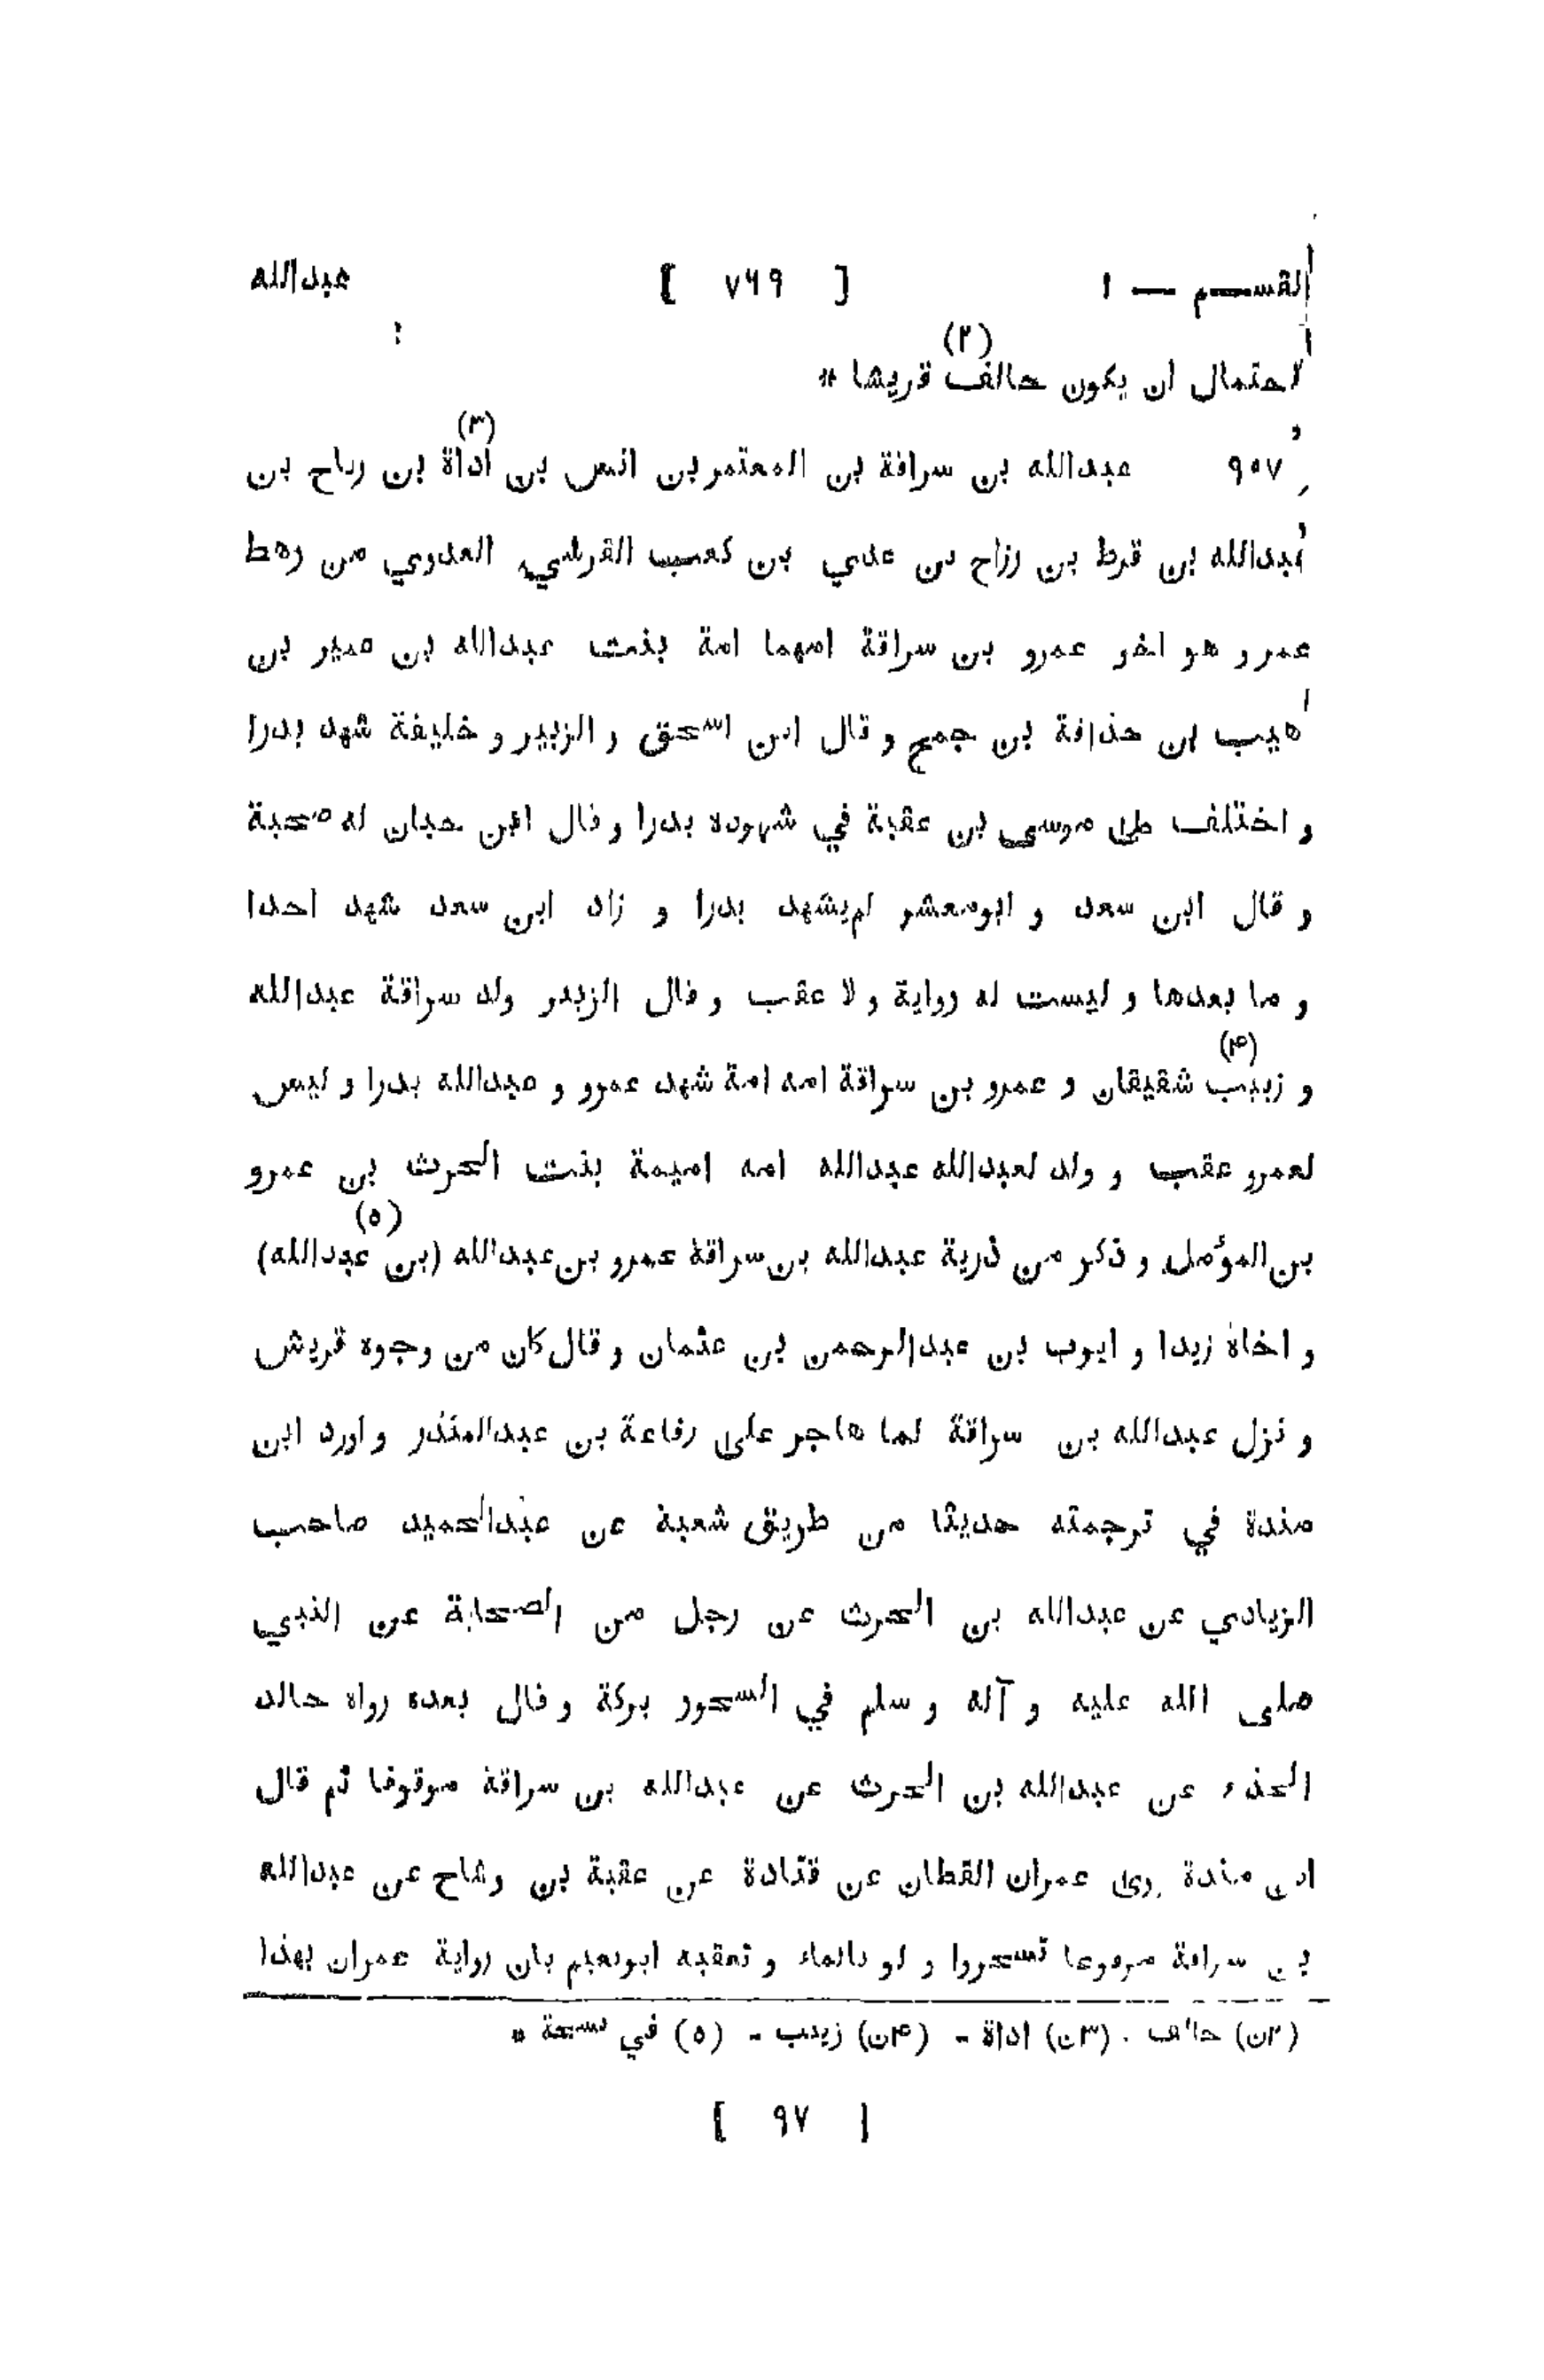 القسم — ١ [ ٧٦٩ ] عبدالله
لاحتمال ان يكون حالف (٢) قريشا *
٩٥٧ عبدالله بن سراقة بن المعتمر بن انس بن اداة (٣) بن رباح بن
عبدالله بن قرط بن رزاح بن عدي بن كعب القرشي العدوي من رهط
عمر و هو اخو عمرو بن سراقة امهما امة بنت عبدالله بن عمير بن
اهيب بن حذافة بن جمح و قال ابن اسحق و الزبير و خليفة شهد بدرا
و اختلف على موسى بن عقبة في شهوده بدرا و قال ابن حبان له صحبة
و قال ابن سعد و ابومعشر لم يشهد بدرا و زاد ابن سعد شهد احدا
و ما بعدها و ليست له رواية و لا عقب و قال الزبير ولد سراقة عبدالله
و زينب (۴) شقيقان و عمرو بن سراقة امه امة شهد عمرو و عبدالله بدرا و ليس
لعمرو عقب و ولد لعبدالله عبدالله امه اميمة بنت الحرث بن عمرو
بن المؤمل و ذكر من ذرية عبدالله بن سراقة عمرو بن عبدالله (بن عبدالله) (٥)
و اخاه زيدا و ايوب بن عبدالرحمن بن عثمان و قال كان من وجوه قريش
و نزل عبدالله بن سراقة لما هاجر على رفاعة بن عبدالمنذر و اورد ابن
مندة في ترجمته حديثا من طريق شعبة عن عبدالحميد صاحب
الزيادي عن عبدالله بن الحرث عن رجل من الصحابة عن النبي
صلى الله عليه و آله و سلم في السحور بركة و قال بعده رواه خالد
الحذاء عن عبدالله بن الحرث عن عبدالله بن سراقة موقوفا ثم قال
ابن مندة روى عمران القطان عن قتادة عن عقبة بن وشاح عن عبدالله
بن سراقة مرفوعا تسحروا و لو بالماء و تعقبه ابونعيم بان رواية عمران بهذا
(٢ن) خالف - (٣ن) اداة - (۴ن) زينب - (٥) في نسخة *
[ ٩٧ ]